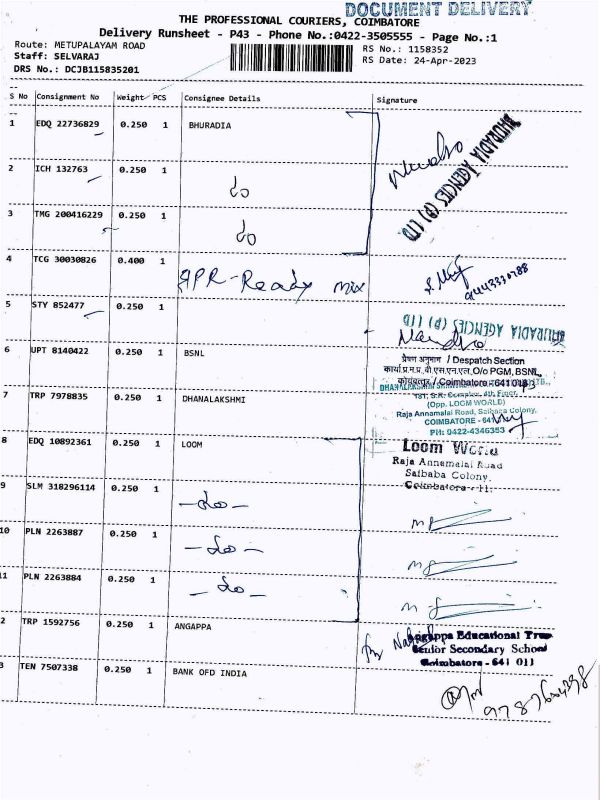 DOCUMENT DELIVERY
THE PROFESSIONAL COURIERS, COIMBATORE
Delivery Runsheet - P43 - Phone No.:0422-3505555 - Page No.:1
Route: METUPALAYAM ROAD
RS No.: 1158352
Staff: SELVARAJ
RS Date: 24-Apr-2023
DRS No.: DCJB115835201
S No Consignment No Weight PCS Consignee Details Signature
1 EDQ 22736829 0.250 1 BHURADIA
BHURADIA AGENCIES (P) LTD
2 ICH 132763 0.250 1
do
3 TMG 200416229 0.250 1
do
4 TCG 30030826 0.400 1
RPR-Ready mix
5 STY 852477 0.250 1
BHURADIA AGENCIES (P) LTD
6 UPT 8140422 0.250 1 BSNL
प्रेषण अनुभाग / Despatch Section
कार्या.प्र.म.प्र. बी.एस.एन.एल./O/o PGM, BSNL,
कोयंबत्तूर / Coimbatore - 641 043
7 TRP 7978835 0.250 1 DHANALAKSHMI
(Opp. LOOM WORLD)
Raja Annamalai Road, Saibaba Colony,
COIMBATORE - 641
PH: 0422-4346353
8 EDQ 10892361 0.250 1 LOOM
Loom World
Raja Annamalai Road
Saibaba Colony,
Coimbatore - 11.
9 SLM 318296114 0.250 1
- do -
10 PLN 2263887 0.250 1
- do -
11 PLN 2263884 0.250 1
- do -
2 TRP 1592756 0.250 1 ANGAPPA
Angappa Educational Trust
Senior Secondary School
Coimbatore - 641 011
3 TEN 7507338 0.250 1 BANK OFD INDIA